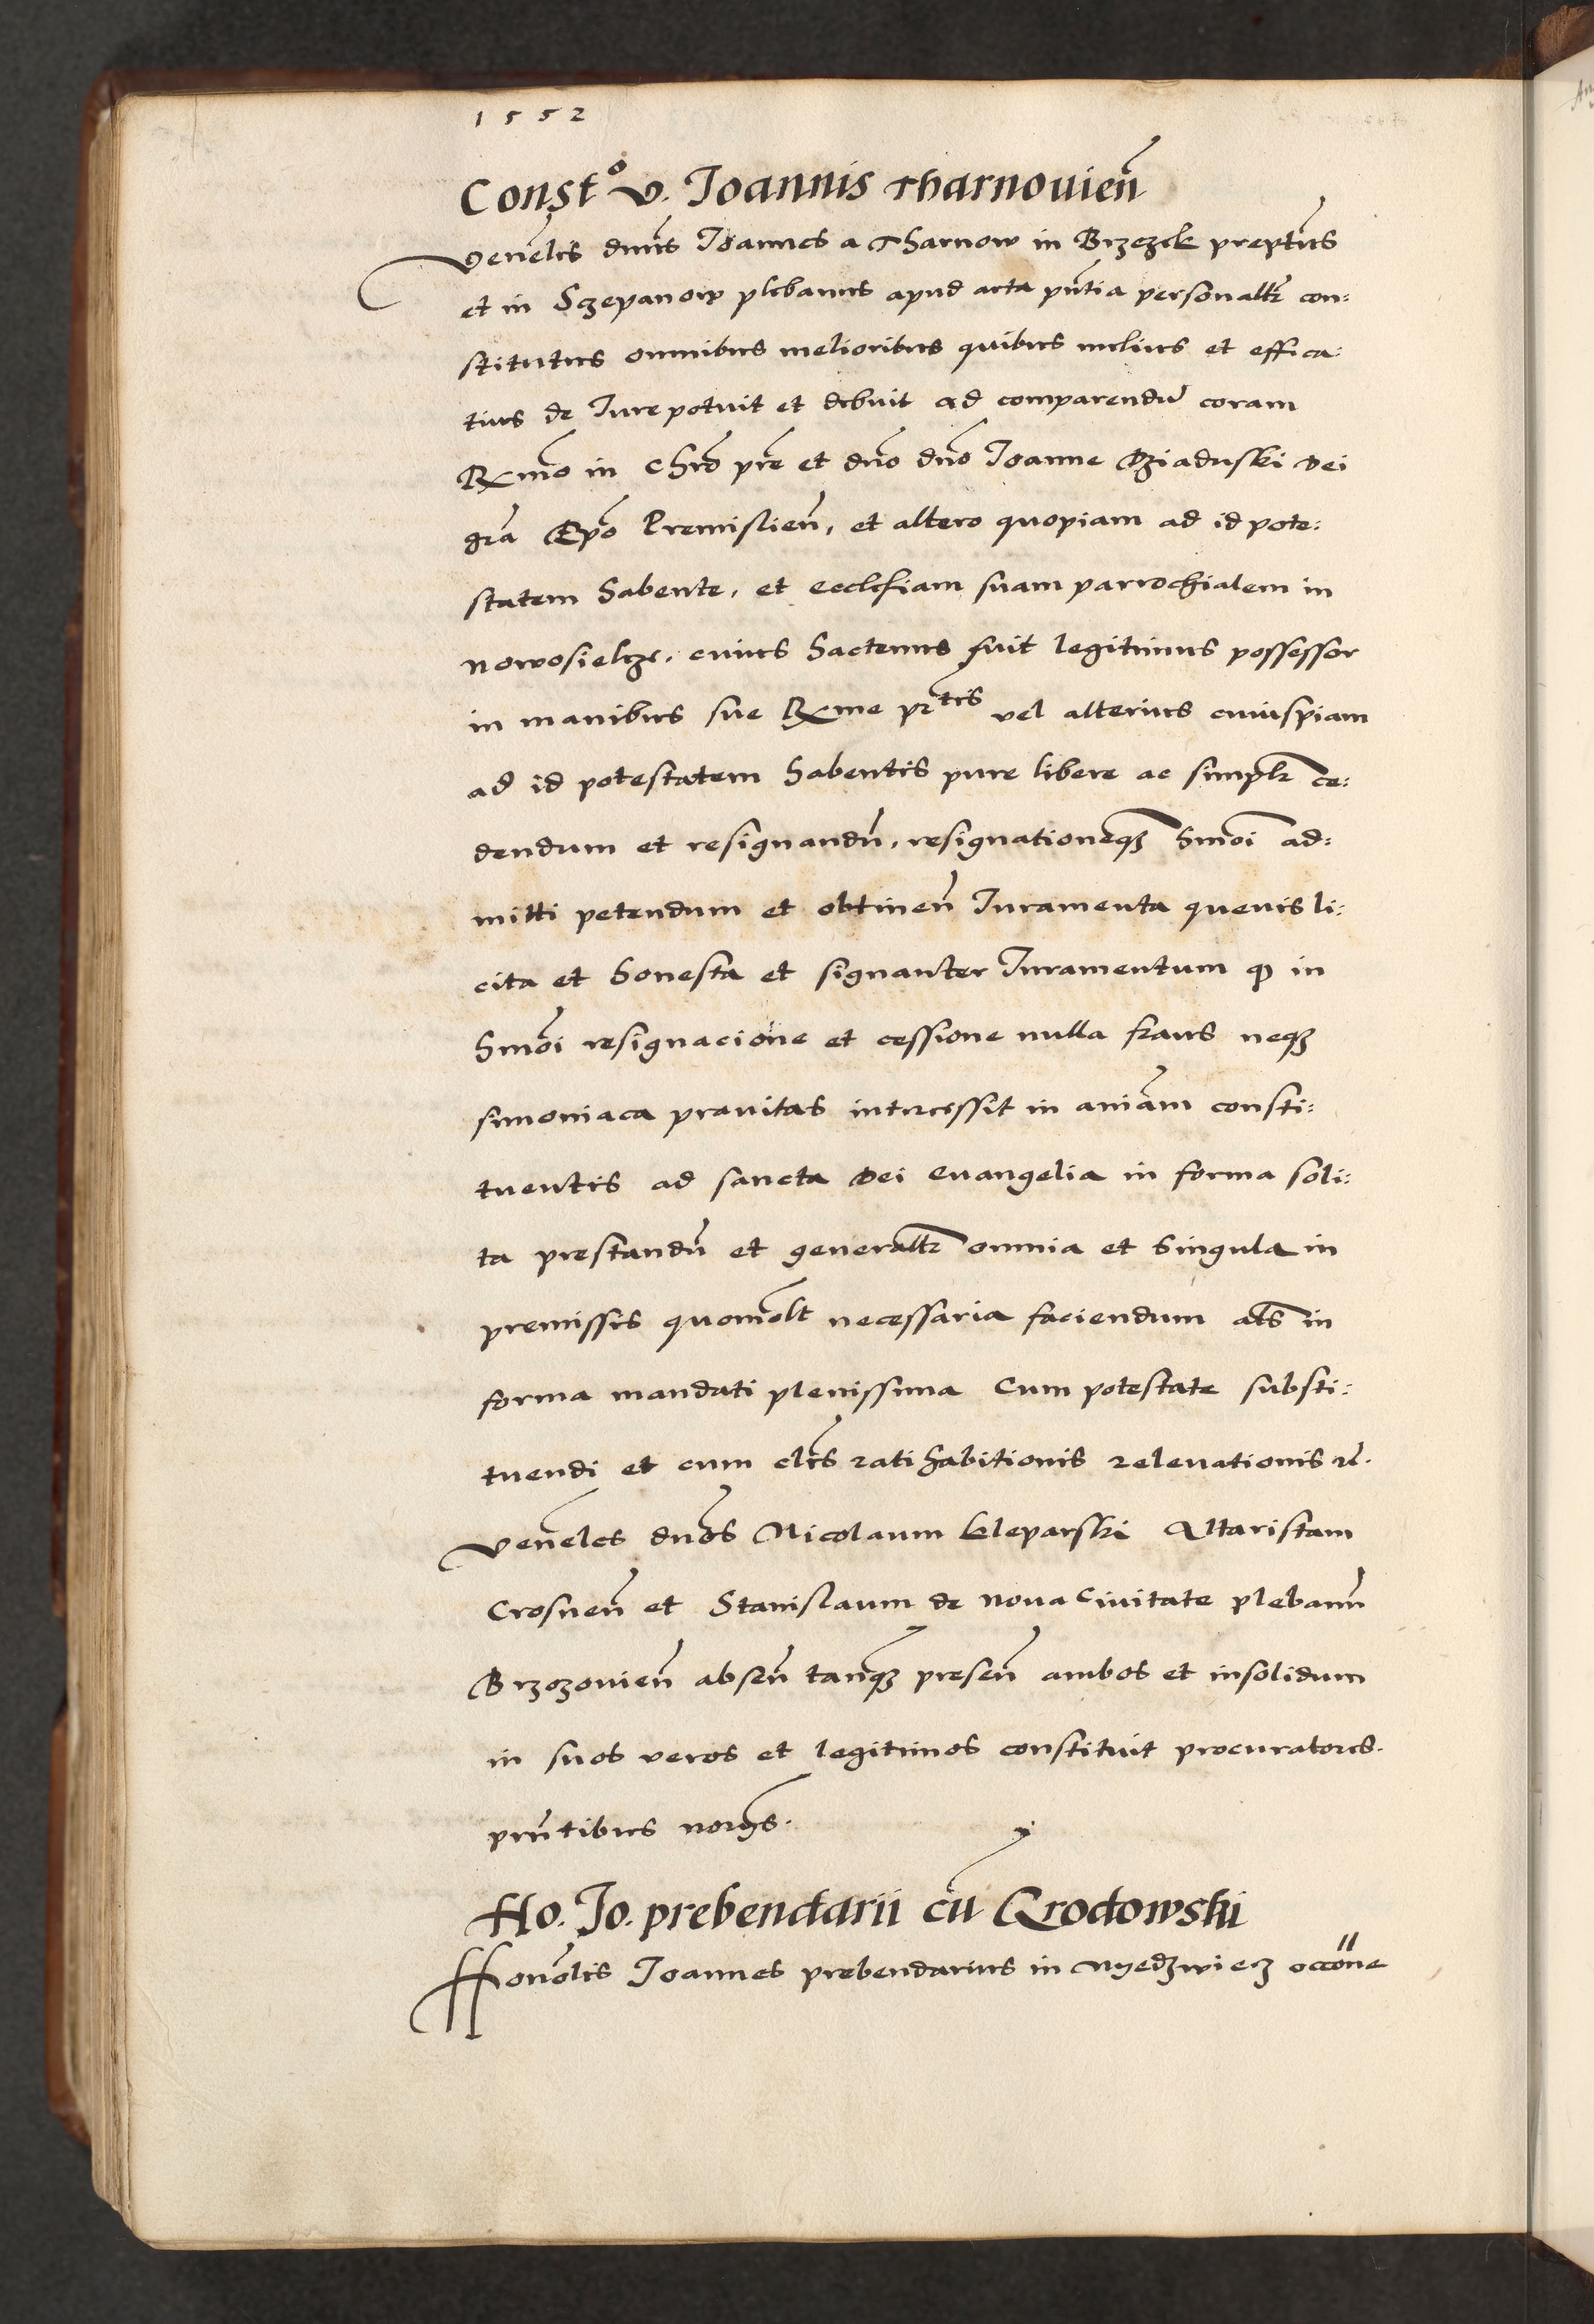 1552
Const.o v. Joannis Tharnovien̄
Venēlis dnūs Joannes a Tharnow in Brzezek prepttūs
et in Sczepanow plebanus apud acta pn̄tia personaltr con:
stitutus omnibus melioribus quibus melius et effica:
tius de Jure potuit et debuit ad comparendū coram
Rxmo in Chrō pre et dnō dnō Joanne Dziaduski dei
grā Epō Premislien̄, et altero quopiam ad id pote:
statem habente, et ecclesiam suam parrochialem in
Nowosielcze, cuius hactenus fuit legitimus possessor
in manibus sue Rxme prtis vel alterius cuiuspiam
ad id potestatem habentis pure libere ac simplr ce:
dendum et resignandū, resignationēqȝ hmōi ad:
mitti petendum et obtinen̄ Juramenta quevis li:
cita et honesta et signanter Juramentum qȝ in
hmōi resignacione et cessione nulla fraus neqȝ
simoniaca pravitas intercessit in aniām consti:
tuentis ad sancta Dei evangelia in forma soli:
ta prestandū et generaltr omnia et singula in
premissis quomōlt necessaria faciendum als in
forma mandati plenissima Cum potestate substi:
tuendi et cum clīs ratihabitionis relevationis rc̄.
Venēles dnōs Nicolaum Kleparski Altaristam
Crosnen̄ et Stanislaum de Nova Civitate plebanū
Brzozovien̄ absen̄ tanq̄ȝ presen̄ ambos et insolidum
in suos veros et legitimos constituit procuratores.
prn̄tibus
Ho. Jo. prebendarii cū Grodowski
Honōlis Joannes prebendarius in Nyedzwiecz occōne